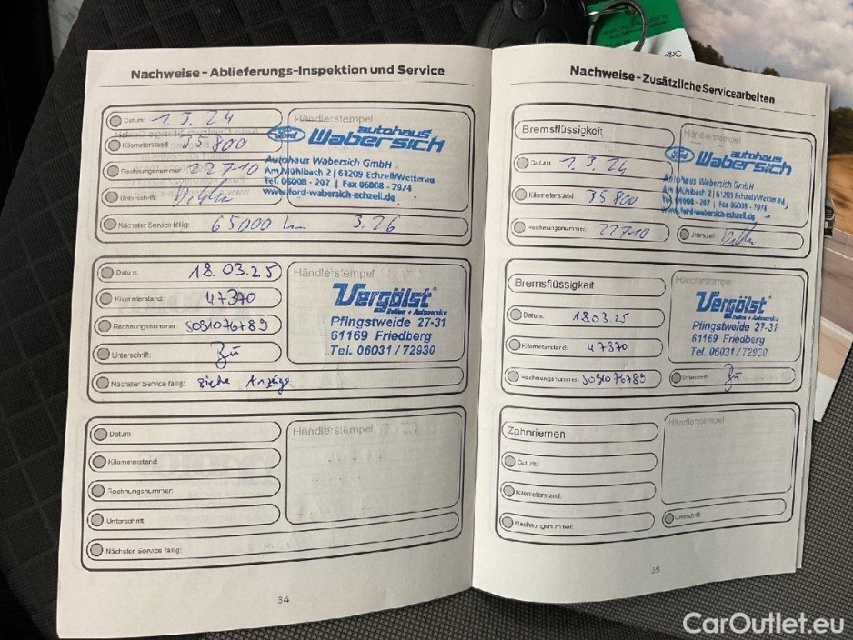 Nachweise - Ablieferungs-Inspektion und Service
Datum: 1.3.24
Kilometerstand: 35800
Rechnungsnummer: 22710
Unterschrift:
Nächster Service fällig: 65000 km 3.26
Händlerstempel
Ford autohaus
Wabersich
Autohaus Wabersich GmbH
Am Mühlbach 2 | 61209 Echzell/Wetterau
Tel. 06008 - 207 | Fax 06008 - 79/4
www.ford-wabersich-echzell.de
Datum: 18.03.25
Kilometerstand: 47370
Rechnungsnummer: 5031076789
Unterschrift:
Nächster Service fällig: siehe Anzeige
Händlerstempel
Vergölst
Reifen + Autoservice
Pfingstweide 27-31
61169 Friedberg
Tel. 06031 / 72930
Datum:
Kilometerstand:
Rechnungsnummer:
Unterschrift:
Nächster Service fällig:
Händlerstempel
34
Nachweise - Zusätzliche Servicearbeiten
Bremsflüssigkeit
Datum: 1.3.24
Kilometerstand: 35800
Rechnungsnummer: 22710
Unterschrift:
Händlerstempel
Ford autohaus
Wabersich
Autohaus Wabersich GmbH
Am Mühlbach 2 | 61209 Echzell/Wetterau
Tel. 06008 - 207 | Fax 06008 - 79/4
www.ford-wabersich-echzell.de
Bremsflüssigkeit
Datum: 18.03.25
Kilometerstand: 47370
Rechnungsnummer: 5031076789
Unterschrift:
Händlerstempel
Vergölst
Reifen + Autoservice
Pfingstweide 27-31
61169 Friedberg
Tel. 06031 / 72930
Zahnriemen
Datum:
Kilometerstand:
Rechnungsnummer:
Unterschrift:
Händlerstempel
35
CarOutlet.eu